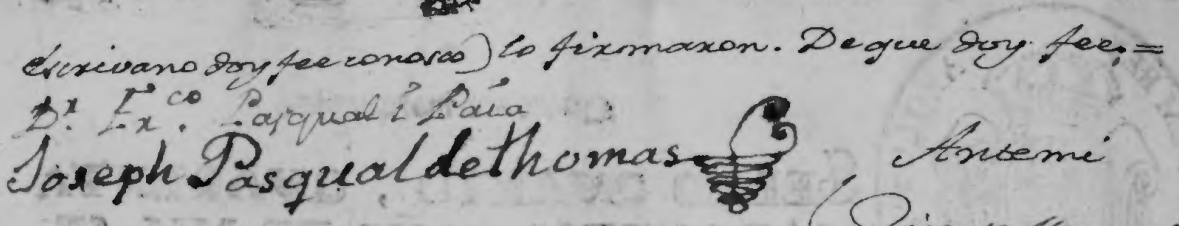 escrivano doy fee conosco) lo firmaron. De que doy fee.=
Dr. Frco. Pasqual i Paia
Joseph Pasqual de thomas
Antemi